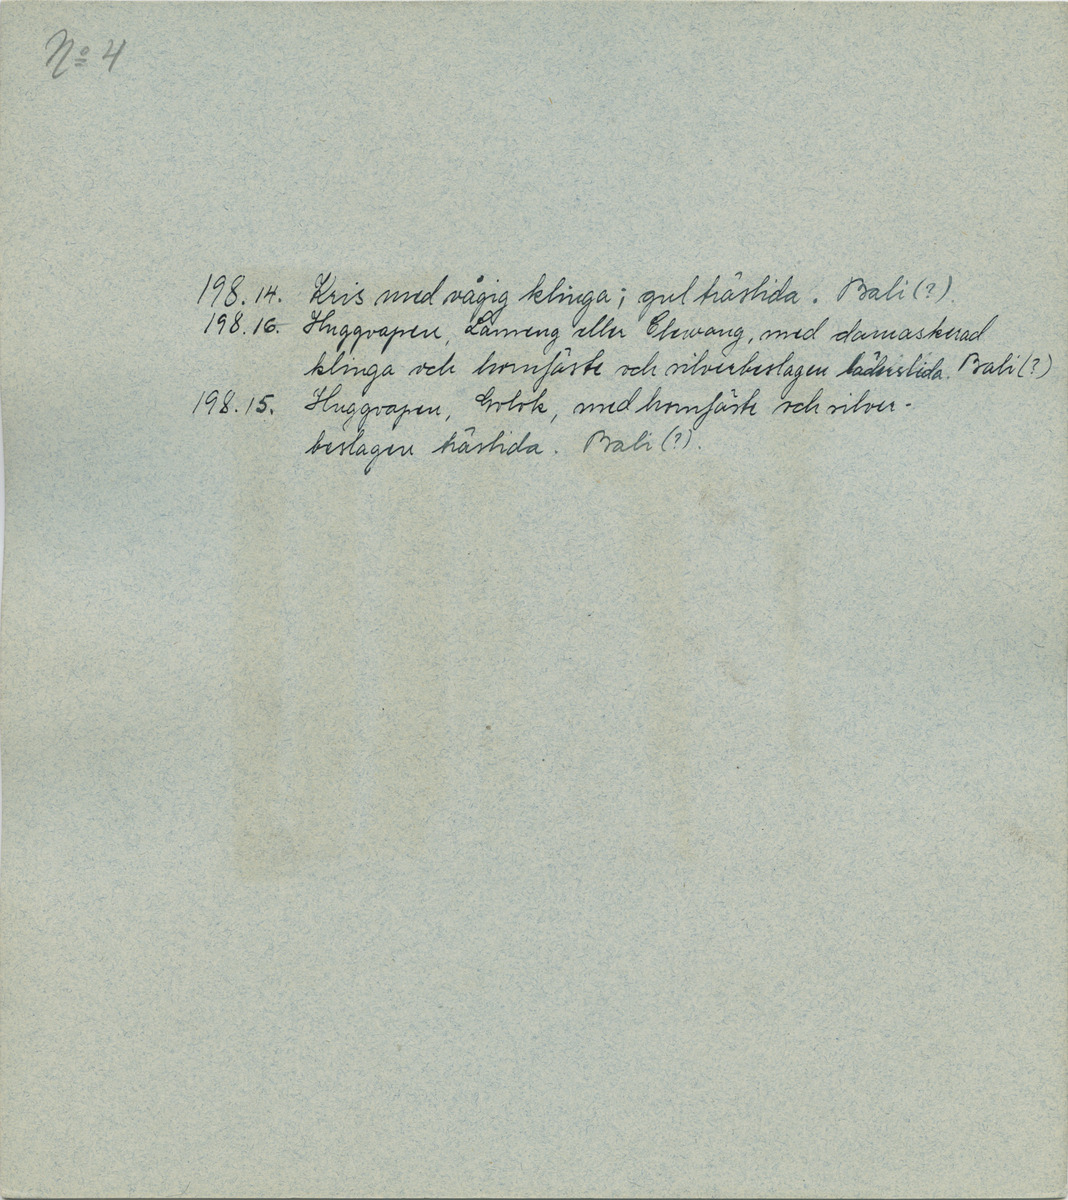 No 4
198.14. Kris med vågig klinga; gul träslida. Bali (?).
198.16. Huggvapen, Lameng eller Klewang, med damaskerad
klinga och hornfäste och silverbeslagen läderslida. Bali (?)
198.15. Huggvapen, Golok, med hornfäste och silver-
beslagen träslida. Bali (?).